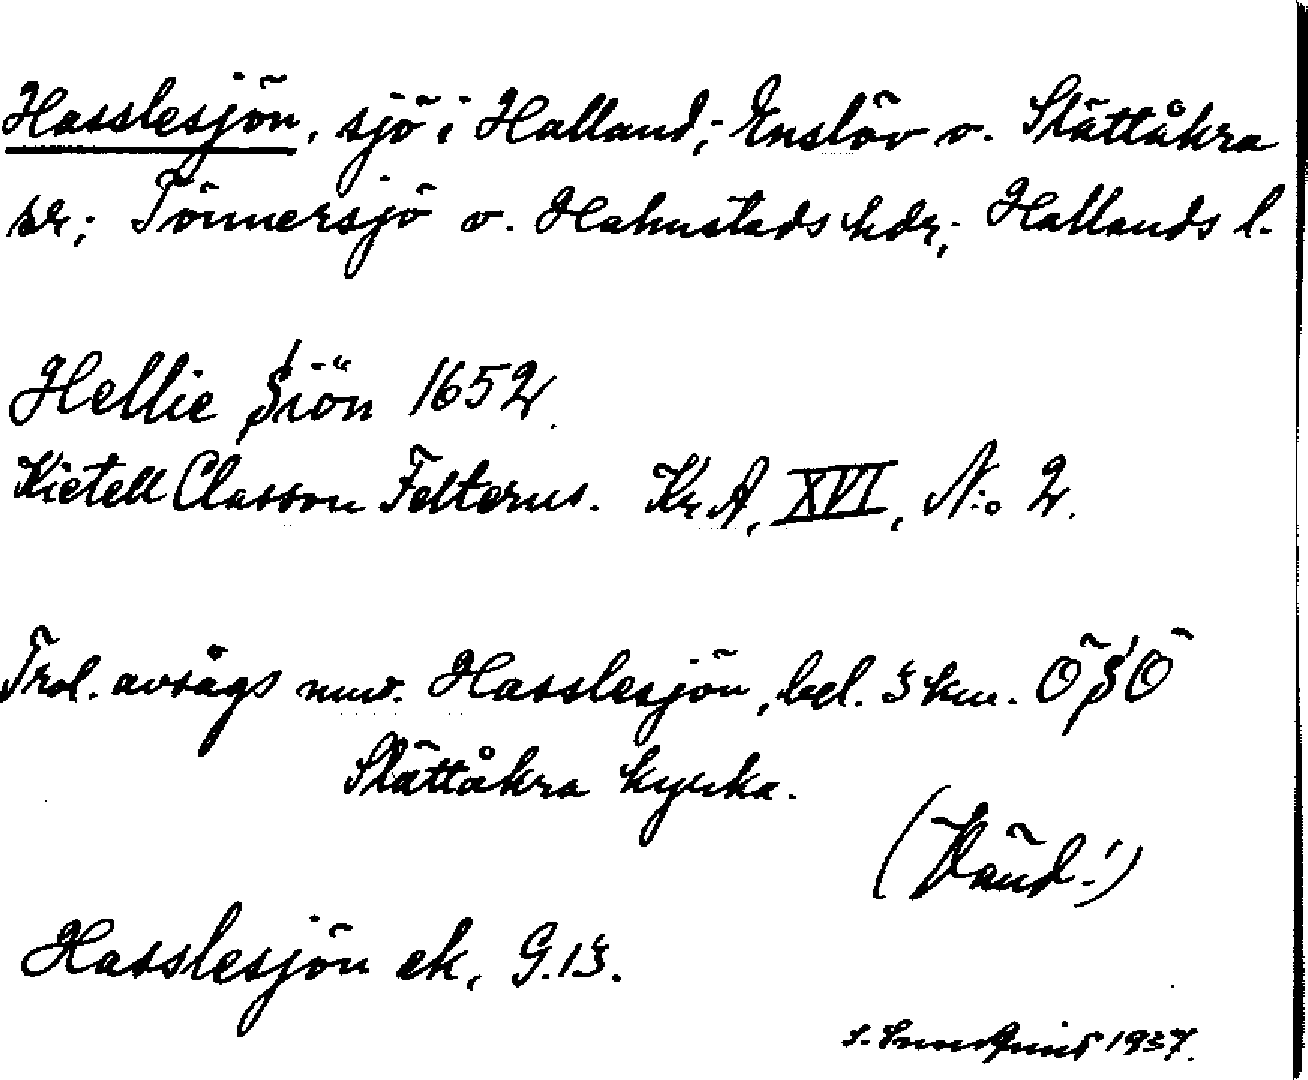 Hasslesjön, sjö i Halland; Enslöv o. Slättåkra
sr; Tönnersjö o. Halmstads hdr; Hallands l.
Hellie Siön 1652.
Kietell Classon Felterus. Kr.A, XVI, N:o 2.
Trol. avsågs nuv. Hasslesjön, bel. 3 km. ÖSÖ
Slättåkra kyrka.
Hasslesjön ek. G.13.
1937.